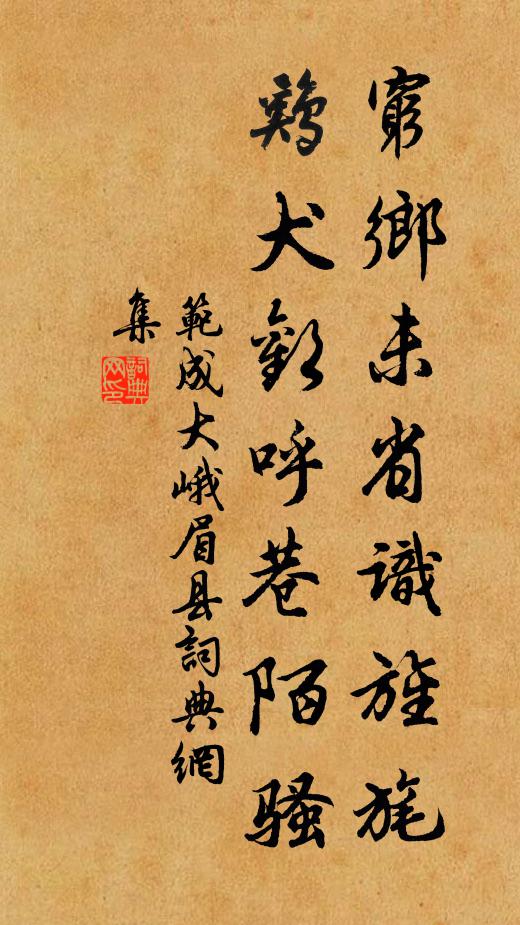 窮鄉未省識旌旄
鷄犬歡呼巷陌騷
範成大峨眉县詞典網
集
詞典
网印